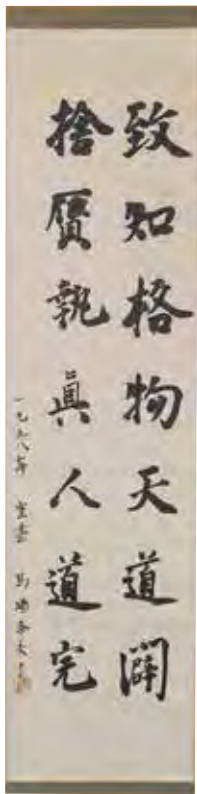 致知格物天道闢
捨贗執真人道完
一九九八年